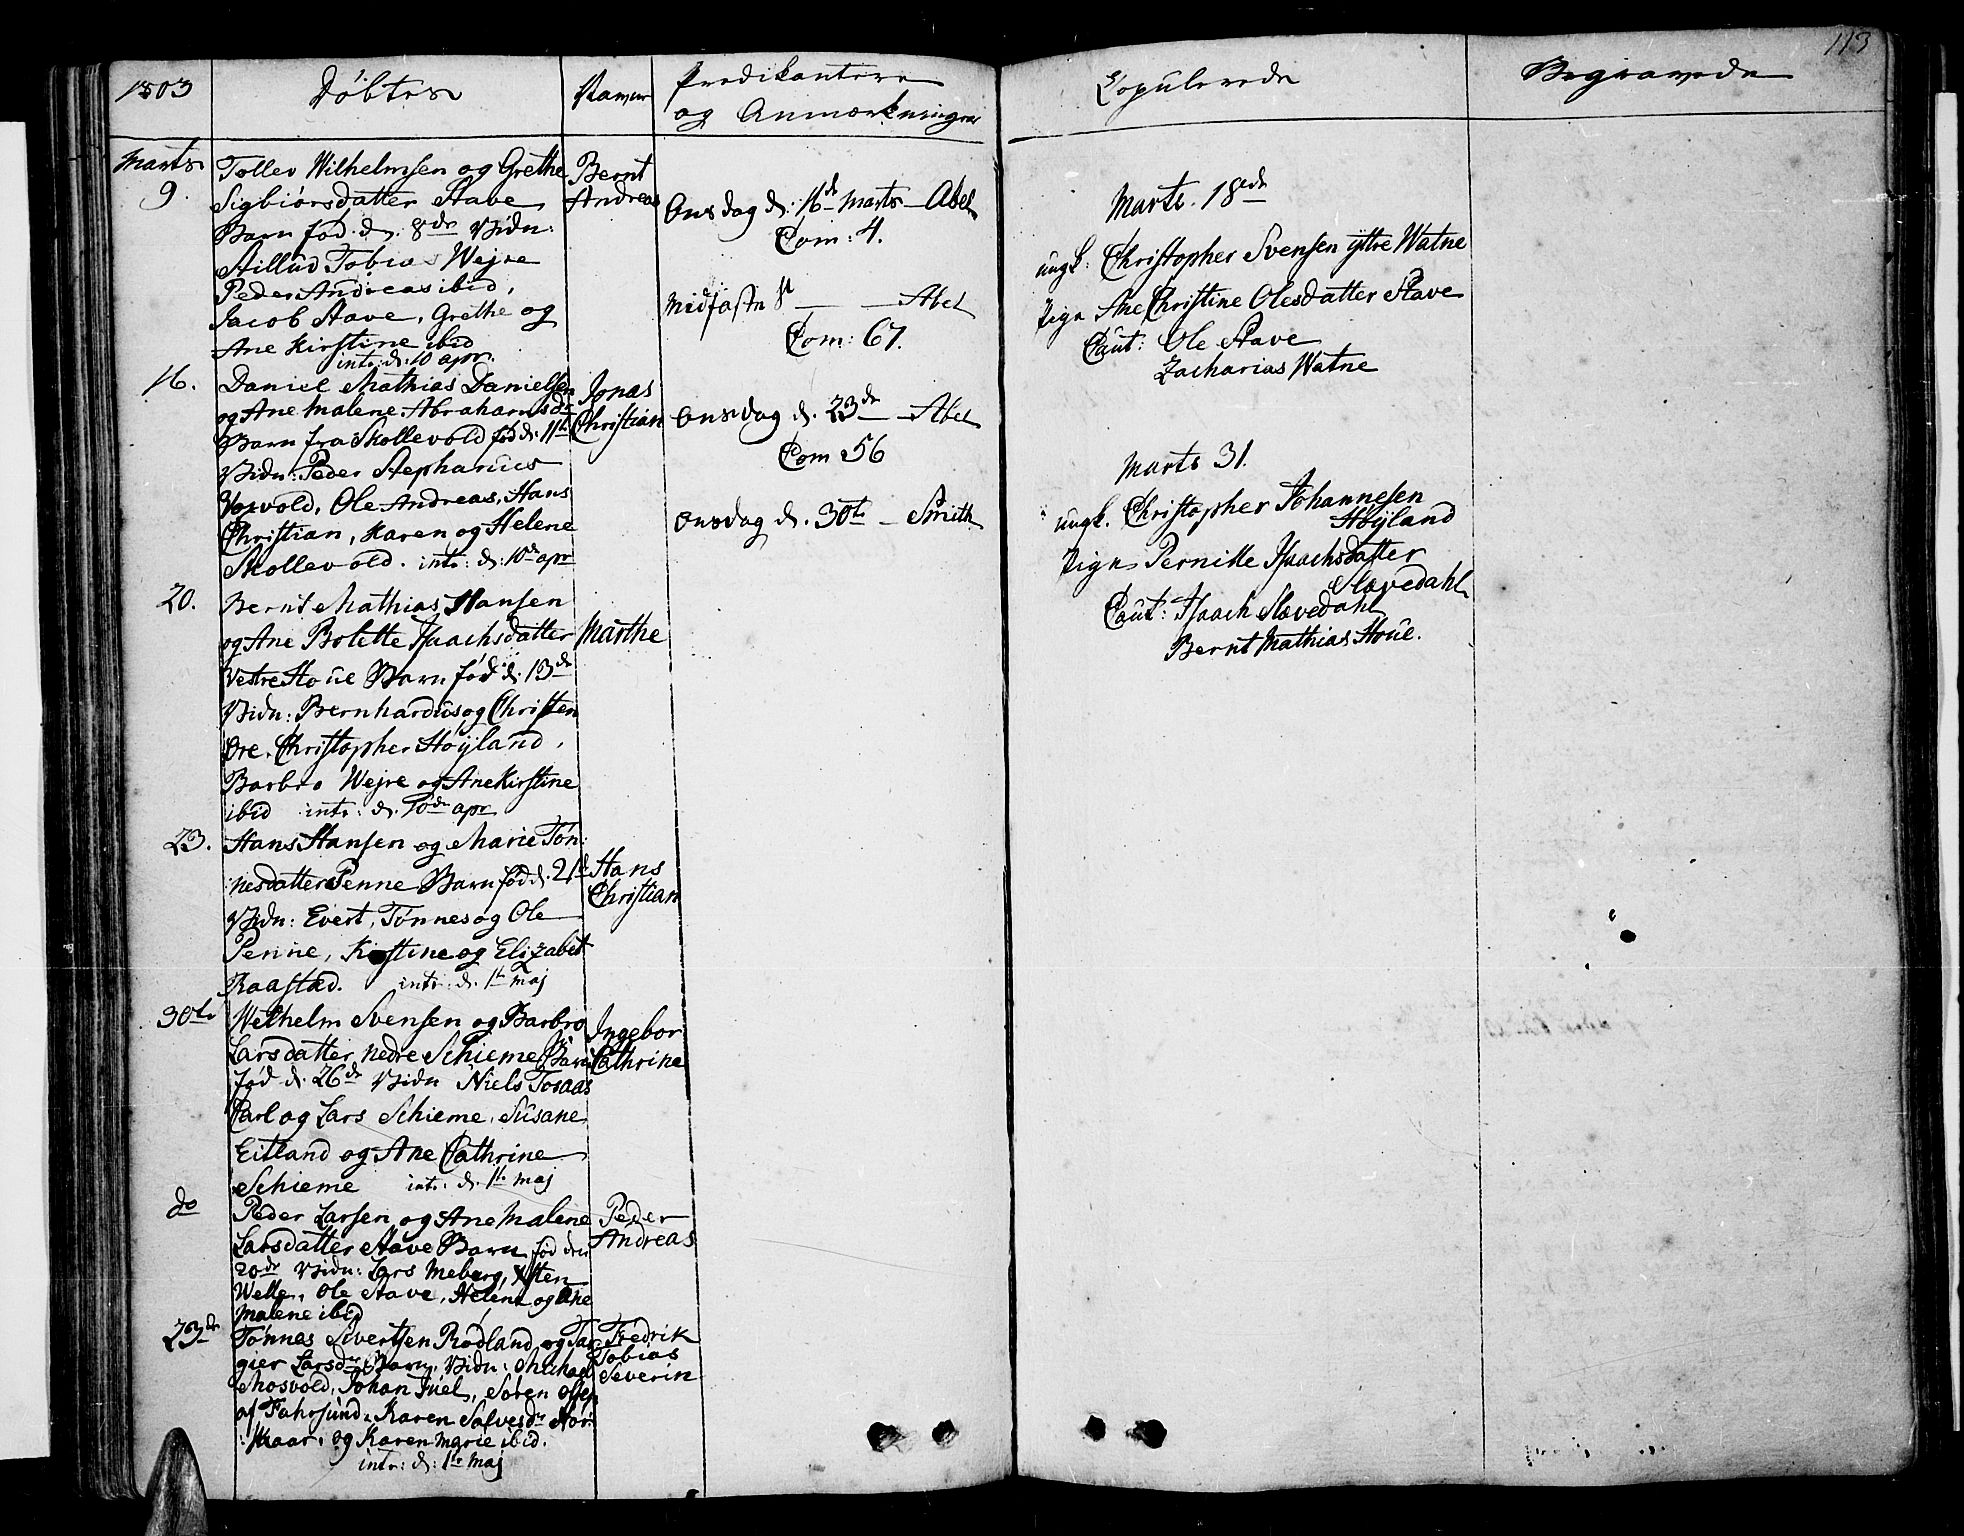 1803
Döbte
Navne
Predikantere
og Anmærkninger
Copulerede
Begravede
113
Marts
9.
Tollev Wilhelmsen og Grethe
Sigbiörsdatter Stave
Barn fød d: 8de Vidn:
Tobias Wejre
Peder Andreas ibid,
Jacob Stave, Grethe og
Ane Kirstine ibid
intr: d: 10 apr.
Bernt
Andreas
16.
Daniel Mathias Danielsen
og Ane Malene Abrahamsd.
Barn fra Skollevold fød d. 11te
Vidn: Peder Stephanus
Vorvold, Ole Andreas, Hans
Christian, Karen og Helene
Skollevold. intr: d: 10de apr
Jonas
Christian
20.
Bernt Mathias Hansen
og Ane Bolette Isaachsdatter
Vestre Houe Barn fød d: 13de
Vidn: Bernhardus og Christen
Ore. Christopher Höyland,
Barbro Wejre og Ane Kirstine
ibid intr: d. 10de apr
Marthe
23.
Hans Hansen og Marie Tön:
nesdatter Penne Barn fød d. 21de
Vidn: Evert, Tönnes og Ole
Penne, Kirstine og Elizabet
Raastad. intr: d. 1te maj
Hans
Christian
30te
Welhelm Svensen og Barbro
Larsdatter nedre Schieme Barn
fød d. 26de Vidn Niels Tosaas
Carl og Lars Schieme, Susane
Eitland og Ane Cathrine
Schieme intr: d. 1te maj
Ingebor
Cathrine
do
Peder Larsen og Ane Malene
Larsdatter Stave Barn fød den
20de Vidn: Lars Meberg, Østen
Welle, Ole Stave, Helene og Ane
Malene ibid
Peder
Andreas
23de
Tönnes Sivertsen Rödland og Tar
gier Larsdr Barn, Vidn: Michael
Mosvold, Johan Juel, Sören Olsen
af Fahrsund, Karen Salvesdr Nör:
:Maar, og Karen Marie ibid.
intr: d: 1te maj
Fredrik
Tobias
Severin
Onsdag d: 16de Marts Abel
Com: 4.
Midfaste S. Abel
Com: 67.
Onsdag d. 23de Abel
Com 56
Onsdag d. 30te Smith
Marts. 18ede
ungk: Christopher Svensen yttre Watne
Pige Ane Christine Olesdatter Stave
Caut: Ole Stave
Zacharias Watne
Marts 31.
ungk. Christopher Johannesen
Höyland
Pige Pernille Isaachsdatter
Slævedahl
Caut: Isaach Slævedahl
Bernt Mathias Houe.